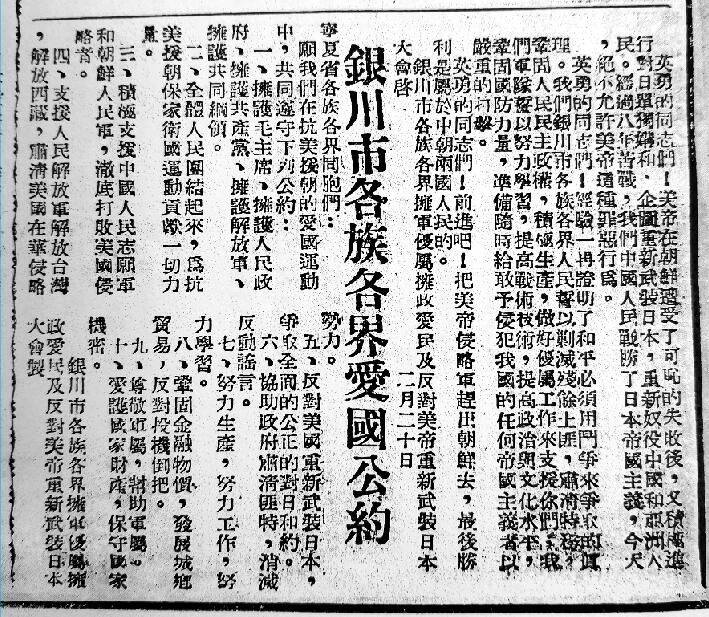 英勇的同志們！美帝在朝鮮遭受了可恥的失敗後，又積極進
行對日單獨媾和，企圖重新武裝日本，重新奴役中國和亞洲人
民。經過八年苦戰，我們中國人民戰勝了日本帝國主義，今天
，絕不允許美帝這種罪惡行爲。
英勇的同志們！經驗一再證明了和平必須用鬥爭來爭取的真
理。我們銀川市各族各界人民誓以剿滅殘餘土匪，肅清特務，
鞏固人民民主政權，積極生產，做好優屬工作來支援你們；我
們軍隊誓以努力學習，提高戰術技術，提高政治與文化水平，
鞏固國防力量，準備隨時給敢于侵犯我國的任何帝國主義者以
嚴重的打擊。
英勇的同志們！前進吧！把美帝侵略軍趕出朝鮮去，最後勝
利是屬於中朝兩國人民的。
銀川市各族各界擁軍優屬擁政愛民及反對美帝重新武裝日本
大會啓
二月二十日
銀川市各族各界愛國公約
寧夏省各族各界同胞們：
願我們在抗美援朝的愛國運動
中，共同遵守下列公約：
一、擁護毛主席、擁護人民政
府、擁護共產黨、擁護解放軍、
擁護共同綱領。
二、全體人民團結起來，爲抗
美援朝保家衛國運動貢獻一切力
量。
三、積極支援中國人民志願軍
和朝鮮人民軍，澈底打敗美國侵
略者。
四、支援人民解放軍解放台灣
，解放西藏，肅清美國在華侵略
勢力。
五、反對美國重新武裝日本，
爭取全面的公正的對日和約。
六、協助政府肅清匪特，消滅
反動謠言。
七、努力生產，努力工作，努
力學習。
八、鞏固金融物價，發展城鄉
貿易，反對投機倒把。
九、尊敬軍屬，幫助軍屬。
十、愛護國家財產，保守國家
機密。
銀川市各族各界擁軍優屬擁
政愛民及反對美帝重新武裝日本
大會製